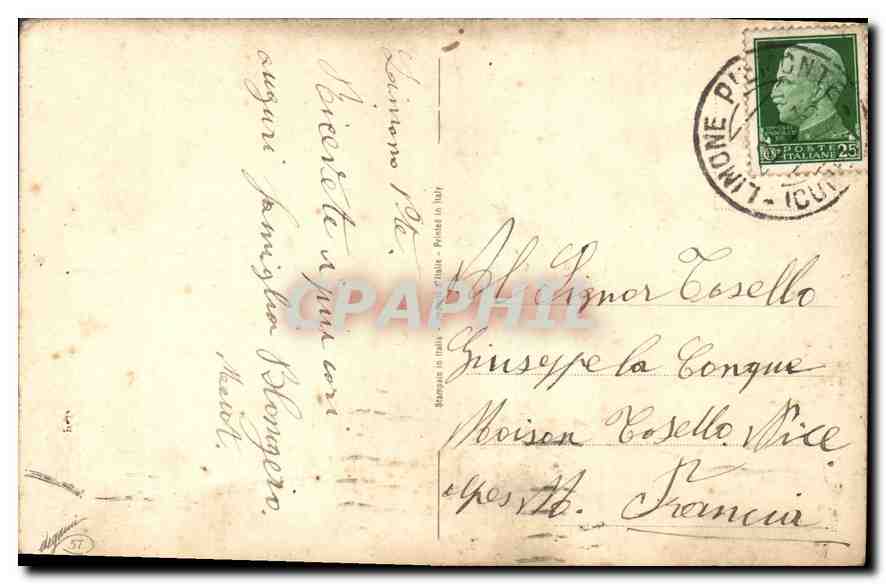 Limone Pte.
Ricevete i più cari
auguri famiglia Blangero
Stampato in Italia - Imprimé d'Italie - Printed in Italy
LIMONE PIEMONTE (CUN
POSTE
ITALIANE 25
Al Signor Tosello
Giuseppe la Conque
Maison Tosello. Nice
alpes M. Francia
degami
57
CPAPHIL